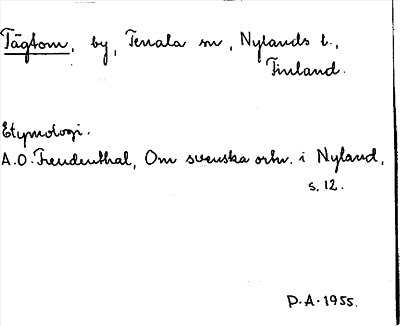 Tägtom, by, Tenala sn, Nylands l.,
Finland.
Etymologi.
A.O. Freudenthal, Om svenska ortn. i Nyland,
s. 12.
P.A. 1955.